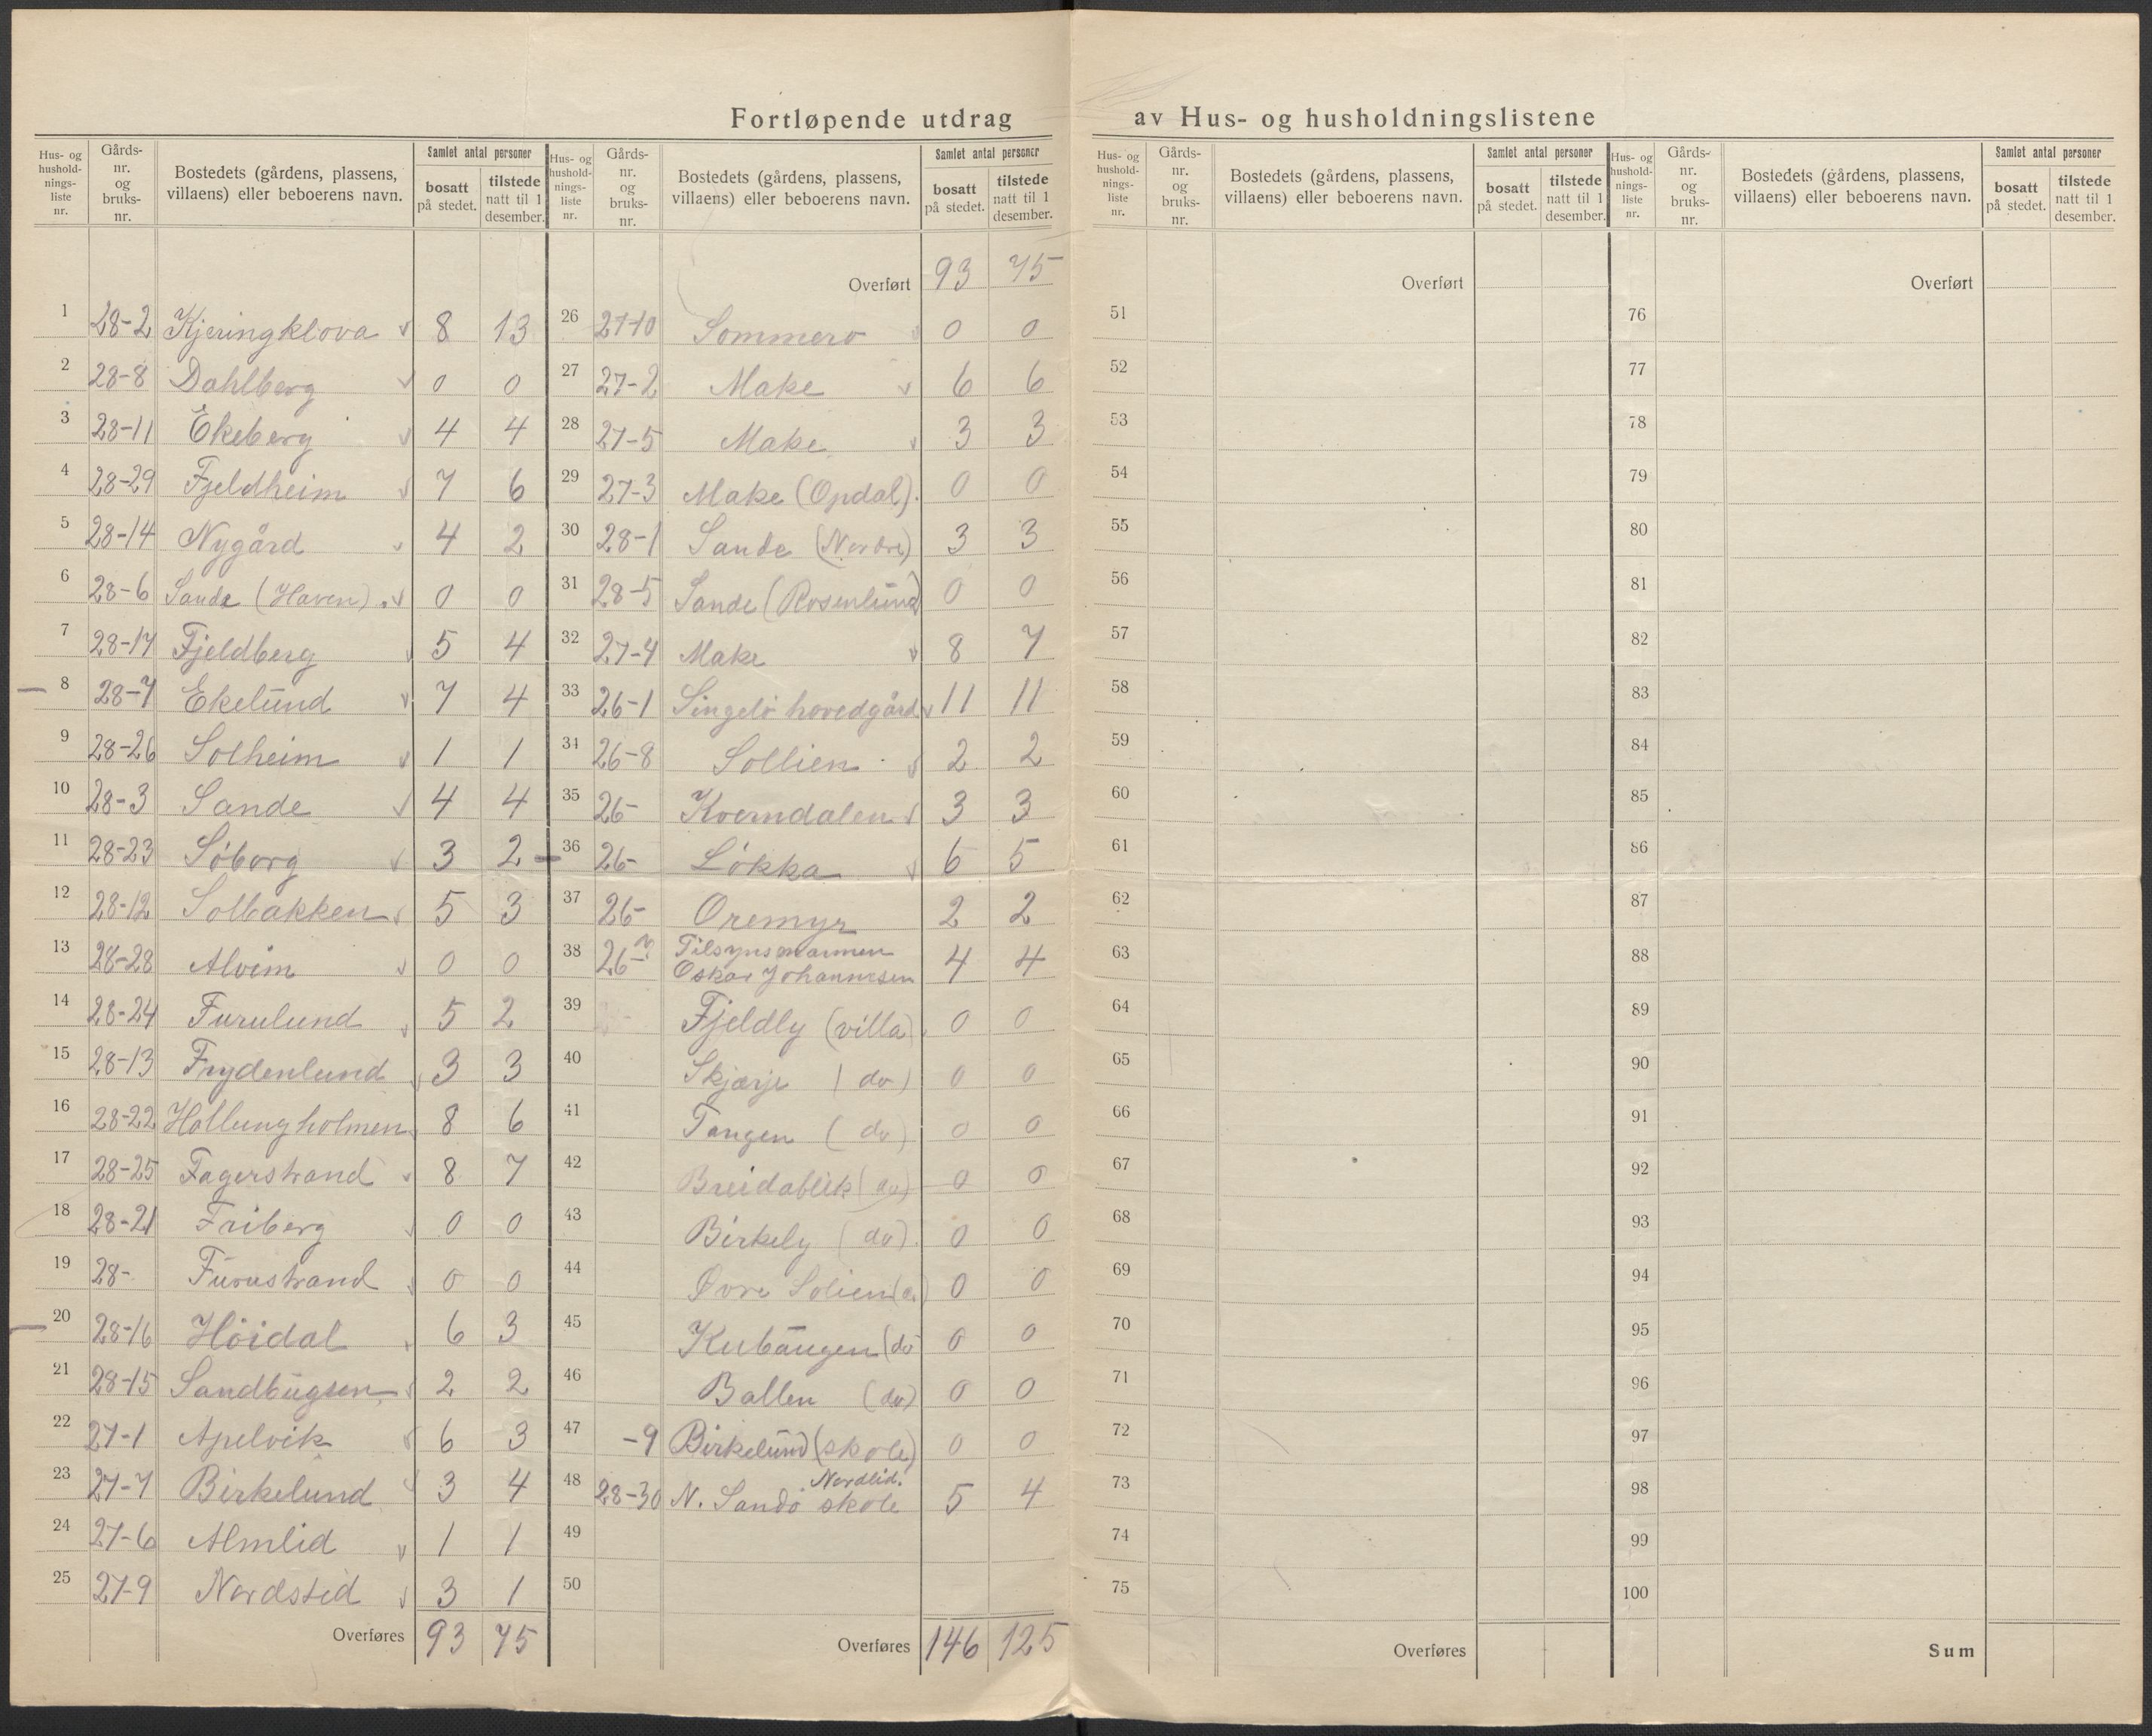 Fortløpende utdrag av Hus- og husholdningslistene
Hus- og husholdningsliste nr. | Gårdsnr. og bruksnr. | Bostedets (gårdens, plassens, villaens) eller beboerens navn. | Samlet antal personer | bosatt på stedet. | tilstede natt til 1 desember.
1 28-2 Kjeringklova 8 13
2 28-8 Dahlberg 0 0
3 28-11 Ekeberg 4 4
4 28-29 Fjeldheim 7 6
5 28-14 Nygård 4 2
6 28-6 Sande (Haven) 0 0
7 28-17 Fjeldberg 5 4
8 28-7 Ekelund 7 4
9 28-26 Solheim 1 1
10 28-3 Sande 4 4
11 28-23 Söborg 3 2
12 28-12 Solbakken 5 3
13 28-28 Alvim 0 0
14 28-24 Furulund 5 2
15 28-13 Frydenlund 3 3
16 28-22 Hollungholmen 8 6
17 28-25 Fagerstrand 8 7
18 28-21 Friberg 0 0
19 28- Furustrand 0 0
20 28-16 Höidal 6 3
21 28-15 Sandbugsen 2 2
22 27-1 Apelvik 6 3
23 27-7 Birkelund 3 4
24 27-6 Almlid 1 1
25 27-9 Nordstid 3 1
Overføres 93 75
Hus- og husholdningsliste nr. | Gårdsnr. og bruksnr. | Bostedets (gårdens, plassens, villaens) eller beboerens navn. | Samlet antal personer | bosatt på stedet. | tilstede natt til 1 desember.
Overført 93 75
26 27-10 Sommero 0 0
27 27-2 Make 6 6
28 27-5 Make 3 3
29 27-3 Make (Opdal) 0 0
30 28-1 Sande (Nordre) 3 3
31 28-5 Sande (Rosenlund) 0 0
32 27-4 Make 8 7
33 26-1 Singelö hovedgård 11 11
34 26-8 Sollien 2 2
35 26- Kverndalen 3 3
36 26- Lökka 6 5
37 26- Oremyr 2 2
38 26- Tilsynsmannen
Oskar Johannesen 4 4
39 Fjeldly (villa) 0 0
40 Skjærje (do) 0 0
41 Tangen (do) 0 0
42 Breidablik (do) 0 0
43 Birkely (do) 0 0
44 Øvre Solien 0 0
45 Kubaugen (do 0 0
46 Ballen (do) 0 0
47 -9 Birkelund (skole) 0 0
Nordlid.
48 28-30 N. Sandö skole 5 4
49
50
Overføres 146 125
Hus- og husholdningsliste nr. | Gårdsnr. og bruksnr. | Bostedets (gårdens, plassens, villaens) eller beboerens navn. | Samlet antal personer | bosatt på stedet. | tilstede natt til 1 desember.
Overført
51
52
53
54
55
56
57
58
59
60
61
62
63
64
65
66
67
68
69
70
71
72
73
74
75
Overføres
Hus- og husholdningsliste nr. | Gårdsnr. og bruksnr. | Bostedets (gårdens, plassens, villaens) eller beboerens navn. | Samlet antal personer | bosatt på stedet. | tilstede natt til 1 desember.
Overført
76
77
78
79
80
81
82
83
84
85
86
87
88
89
90
91
92
93
94
95
96
97
98
99
100
Sum